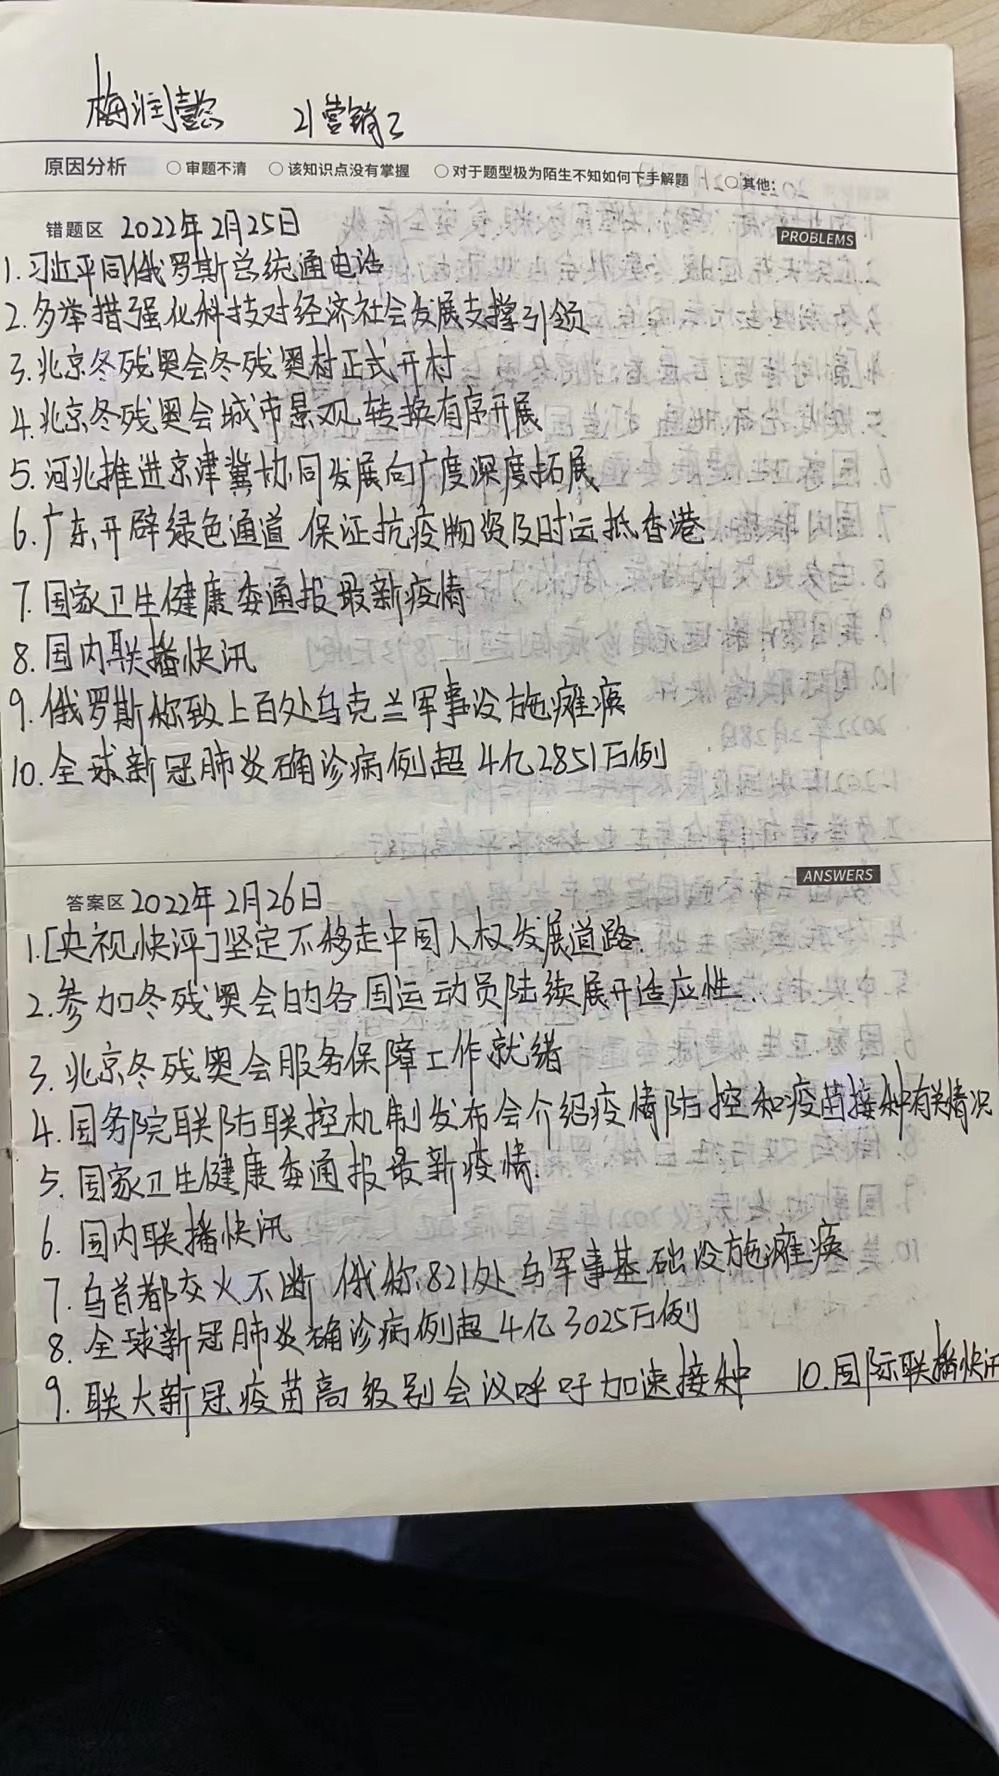 梅润懿 21营销2
原因分析 ○ 审题不清 ○ 该知识点没有掌握 ○ 对于题型极为陌生不知如何下手解题 ○ 其他:
错题区 2022年2月25日 PROBLEMS
1.习近平同俄罗斯总统通电话
2.多举措强化科技对经济社会发展支撑引领
3.北京冬残奥会冬残奥村正式开村
4.北京冬残奥会城市景观转换有序开展
5.河北推进京津冀协同发展向广度深度拓展
6.广东开辟绿色通道 保证抗疫物资及时运抵香港
7.国家卫生健康委通报最新疫情
8.国内联播快讯
9.俄罗斯称致上百处乌克兰军事设施瘫痪
10.全球新冠肺炎确诊病例超4亿2851万例
答案区 2022年2月26日 ANSWERS
1.[央视快评]坚定不移走中国人权发展道路.
2.参加冬残奥会的各国运动员陆续展开适应性.
3.北京冬残奥会服务保障工作就绪
4.国务院联防联控机制发布会介绍疫情防控和疫苗接种有关情况
5.国家卫生健康委通报最新疫情.
6.国内联播快讯
7.乌首都交火不断 俄称821处乌军事基础设施瘫痪
8.全球新冠肺炎确诊病例超4亿3025万例
9.联大新冠疫苗高级别会议呼吁加速接种 10.国际联播快讯